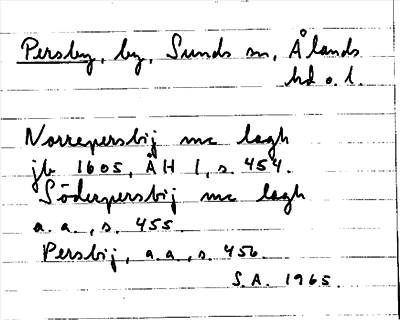 Persby, by, Sunds sn, Ålands
hd o. l.
Norrepersbij mc lagh
jb 1605, ÅH 1, s. 454.
Söderpersbij mc lagh
a. a., s. 455.
Persbij, a. a., s. 456.
S.A. 1965.